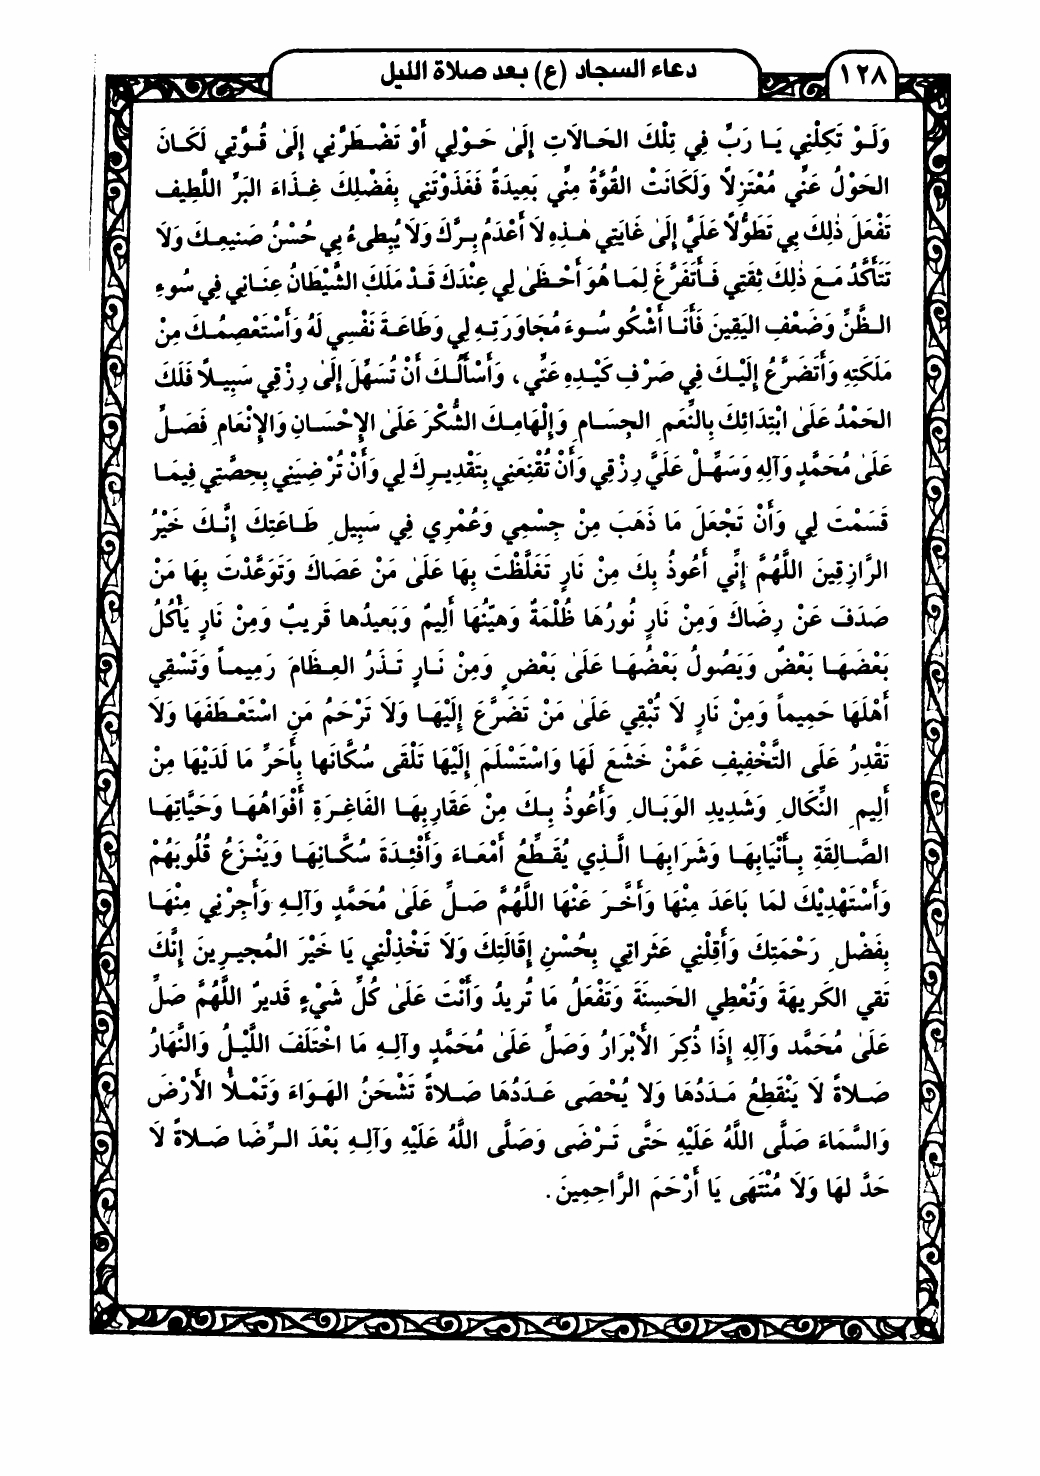 ١٢٨
دعاء السجاد (ع) بعد صلاة الليل
وَلَوْ تَكِلْنِي يَا رَبِّ فِي تِلْكَ الحَالَاتِ إِلَىٰ حَوْلِي أَوْ تَضْطَرُّنِي إِلَىٰ قُوَّتِي لَكَانَ
الحَوْلُ عَنِّي مُعْتَزِلاً وَلَكَانَتْ القُوَّةُ مِنِّي بَعِيدَةً فَغَذَوْتَنِي بِفَضْلِكَ غِذَاءَ البَرِّ اللَّطِيفِ
تَفْعَلَ ذٰلِكَ بِي تَطَوُّلاً عَلَيَّ إِلَىٰ غَايَتِي هٰذِهِ لَا أَعْدَمُ بِرَّكَ وَلَا يُبْطِىءُ بِي حُسْنُ صَنِيعِكَ وَلَا
تَتَأَكَّدُ مَعَ ذٰلِكَ ثِقَتِي فَأَتَفَرَّغَ لِمَا هُوَ أَحْظَىٰ لِي عِنْدَكَ قَدْ مَلَكَ الشَّيْطَانُ عِنَانِي فِي سُوءِ
الظَّنِّ وَضَعْفِ اليَقِينَ فَأَنَا أَشْكُو سُوءَ مُجَاوَرَتِهِ لِي وَطَاعَةَ نَفْسِي لَهُ وَأَسْتَعْصِمُكَ مِنْ
مَلَكَتِهِ وَأَتَضَرَّعُ إِلَيْكَ فِي صَرْفِ كَيْدِهِ عَنِّي، وَأَسْأَلُكَ أَنْ تُسَهِّلَ إِلَىٰ رِزْقِي سَبِيلاً فَلَكَ
الحَمْدُ عَلَىٰ ابْتِدَائِكَ بِالنِّعَمِ الجِسَامِ وَإِلْهَامِكَ الشُّكْرَ عَلَىٰ الإِحْسَانِ وَالإِنْعَامِ فَصَلِّ
عَلَىٰ مُحَمَّدٍ وَآلِهِ وَسَهِّلْ عَلَيَّ رِزْقِي وَأَنْ تُقْنِعَنِي بِتَقْدِيرِكَ لِي وَأَنْ تُرْضِيَنِي بِحِصَّتِي فِيمَا
قَسَمْتَ لِي وَأَنْ تَجْعَلَ مَا ذَهَبَ مِنْ جِسْمِي وَعُمْرِي فِي سَبِيلِ طَاعَتِكَ إِنَّكَ خَيْرُ
الرَّازِقِينَ اللَّهُمَّ إِنِّي أَعُوذُ بِكَ مِنْ نَارٍ تَغَلَّظْتَ بِهَا عَلَىٰ مَنْ عَصَاكَ وَتَوَعَّدْتَ بِهَا مَنْ
صَدَفَ عَنْ رِضَاكَ وَمِنْ نَارٍ نُورُهَا ظُلْمَةٌ وَهَيِّنُهَا أَلِيمٌ وَبَعِيدُها قَرِيبٌ وَمِنْ نَارٍ يَأْكُلُ
بَعْضَهَا بَعْضٌ وَيَصُولُ بَعْضُهَا عَلَىٰ بَعْضٍ وَمِنْ نَارٍ تَذَرُ العِظَامَ رَمِيماً وَتَسْقِي
أَهْلَهَا حَمِيماً وَمِنْ نَارٍ لَا تُبْقِي عَلَىٰ مَنْ تَضَرَّعَ إِلَيْهَا وَلَا تَرْحَمُ مَنِ اسْتَعْطَفَهَا وَلَا
تَقْدِرُ عَلَى التَّخْفِيفِ عَمَّنْ خَشَعَ لَهَا وَاسْتَسْلَمَ إِلَيْهَا تَلْقَى سُكَّانَها بِأَحَرِّ مَا لَدَيْهَا مِنْ
أَلِيمِ النِّكَالِ وَشَدِيدِ الوَبَالِ وَأَعُوذُ بِكَ مِنْ عَقَارِبِهَا الفَاغِرَةِ أَفْوَاهُهَا وَحَيَّاتِهَا
الصَّالِقَةِ بِأَنْيَابِهَا وَشَرَابِهَا الَّذِي يُقَطِّعُ أَمْعَاءَ وَأَفْئِدَةَ سُكَّانِهَا وَيَنْزَعُ قُلُوبَهُمْ
وَأَسْتَهْدِيْكَ لمَا بَاعَدَ مِنْهَا وَأَخَّرَ عَنْهَا اللَّهُمَّ صَلِّ عَلَىٰ مُحَمَّدٍ وَآلِهِ وَأَجِرْنِي مِنْهَا
بِفَضْلِ رَحْمَتِكَ وَأَقِلْنِي عَثَراتِي بِحُسْنِ إِقَالَتِكَ وَلَا تَخْذِلْنِي يَا خَيْرَ المُجِيرِينَ إِنَّكَ
تَقي الكَرِيهَةَ وَتُعْطِي الحَسِنَةَ وَتَفْعَلُ مَا تُرِيدُ وَأَنْتَ عَلَىٰ كُلِّ شَيْءٍ قَدِيرٌ اللَّهُمَّ صَلِّ
عَلَىٰ مُحَمَّد وَآلِهِ إِذَا ذُكِرَ الأَبْرَارُ وَصَلِّ عَلَىٰ مُحَمَّدٍ وآلِهِ مَا اخْتَلَفَ اللَّيْلُ وَالنَّهَارُ
صَلاةً لَا يَنْقَطِعُ مَدَدُهَا وَلا يُحْصَى عَدَدُهَا صَلاةً تَشْحَنُ الهَوَاءَ وَتَمْلأُ الأَرْضَ
وَالسَّمَاءَ صَلَّى اللَّهُ عَلَيْهِ حَتَّى تَرْضَى وَصَلَّى اللَّهُ عَلَيْهِ وَآلِهِ بَعْدَ الرِّضَا صَلاةً لَا
حَدَّ لهَا وَلَا مُنْتَهَى يَا أَرْحَمَ الرَّاحِمِينَ.